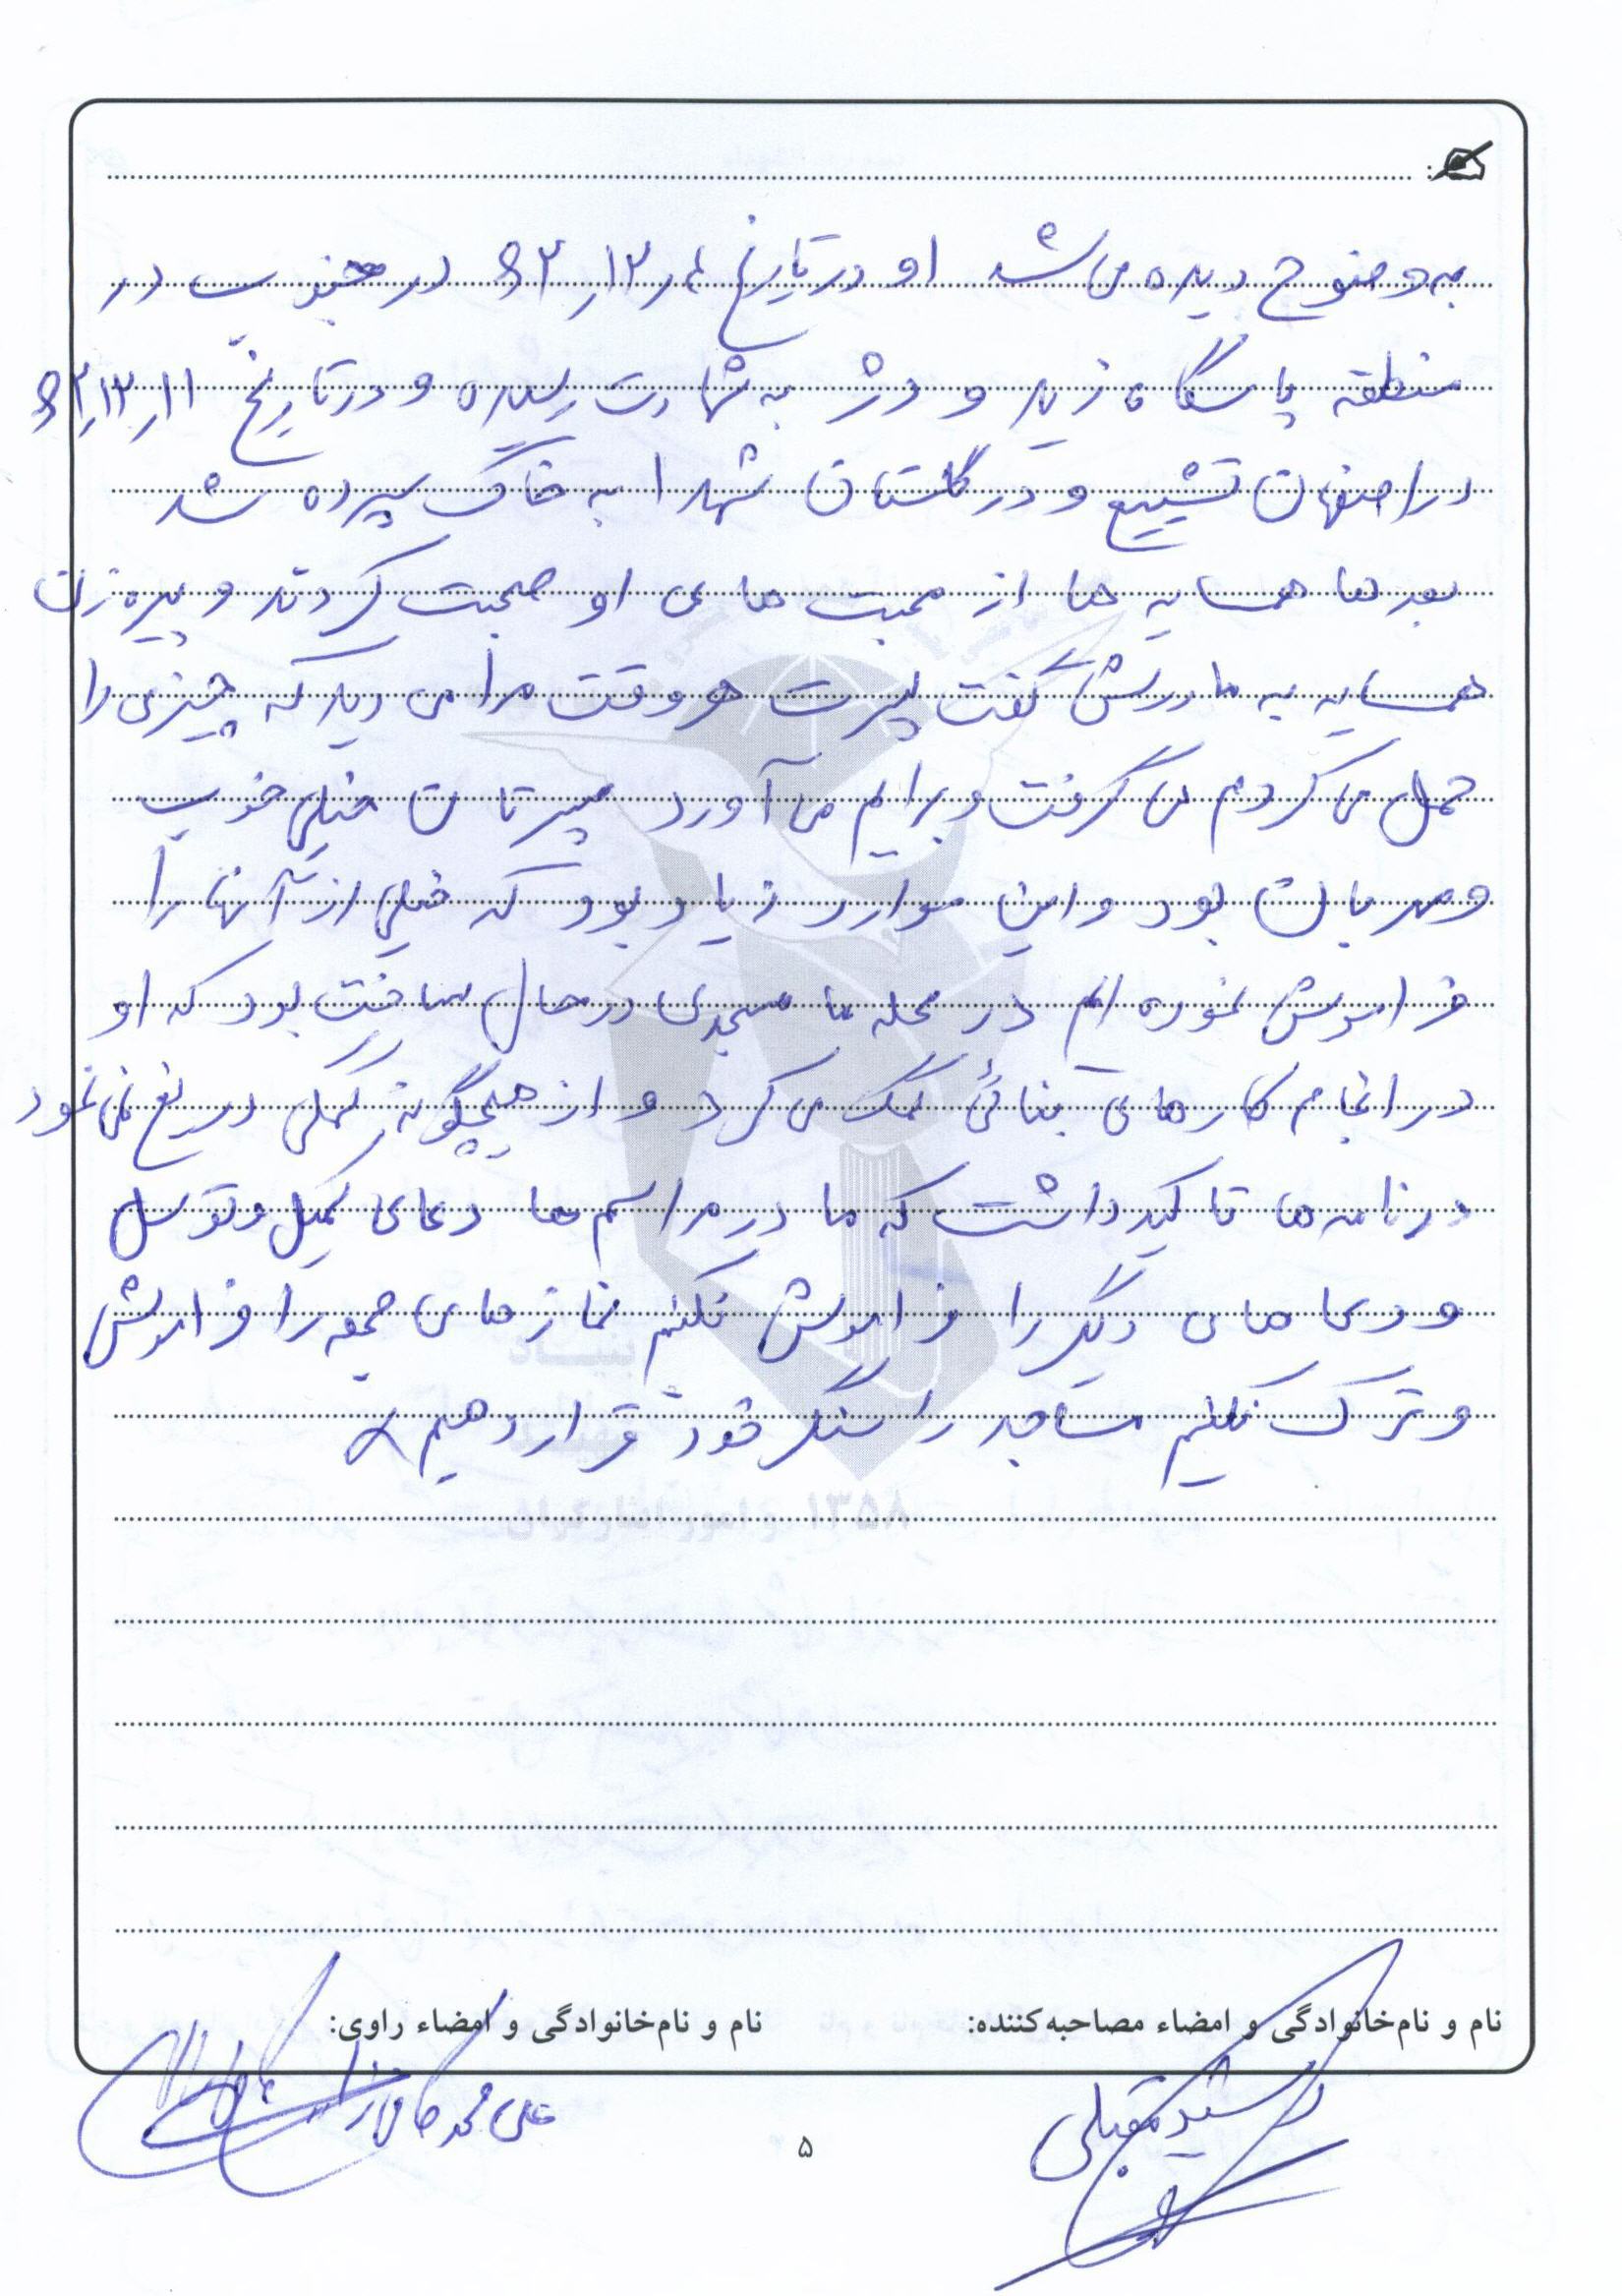 به وضوح دیده می‌شد او در تاریخ در جنوب در
منطقه پاسگاه زید و دژ به شهادت رسیده و در تاریخ
در اصفهان تشییع و در گلستان شهدا به خاک سپرده شد
بعدها همسایه ها از محبت های او صحبت کردند و پیره زن
همسایه به مادرش گفت پسرت هر وقت مرا می دید که چیزی را
حمل می کردم می گرفت و برایم می آورد پسرتان خیلی خوب
و مهربان بود و این موارد زیاد بود که خیلی از آنها را
فراموش نموده ام در محله ما مسجدی در حال ساخت بود که او
در انجام کارهای بنائی کمک می کرد و از هیچگونه کمکی دریغ نمی نمود
در نامه ها تاکید داشت که ما در مراسم ها دعای کمیل و توسل
و دعا های دیگر را فراموش نکنیم نماز های جمعه را فراموش
و ترک نکنیم مساجد را سنگر خود قرار دهیم
بنیاد
شهید
و امور ایثارگران ۱۳۵۸
نام و نام‌خانوادگی و امضاء مصاحبه‌کننده:
نام و نام‌خانوادگی و امضاء راوی:
مقبلی
علی محمد
۵